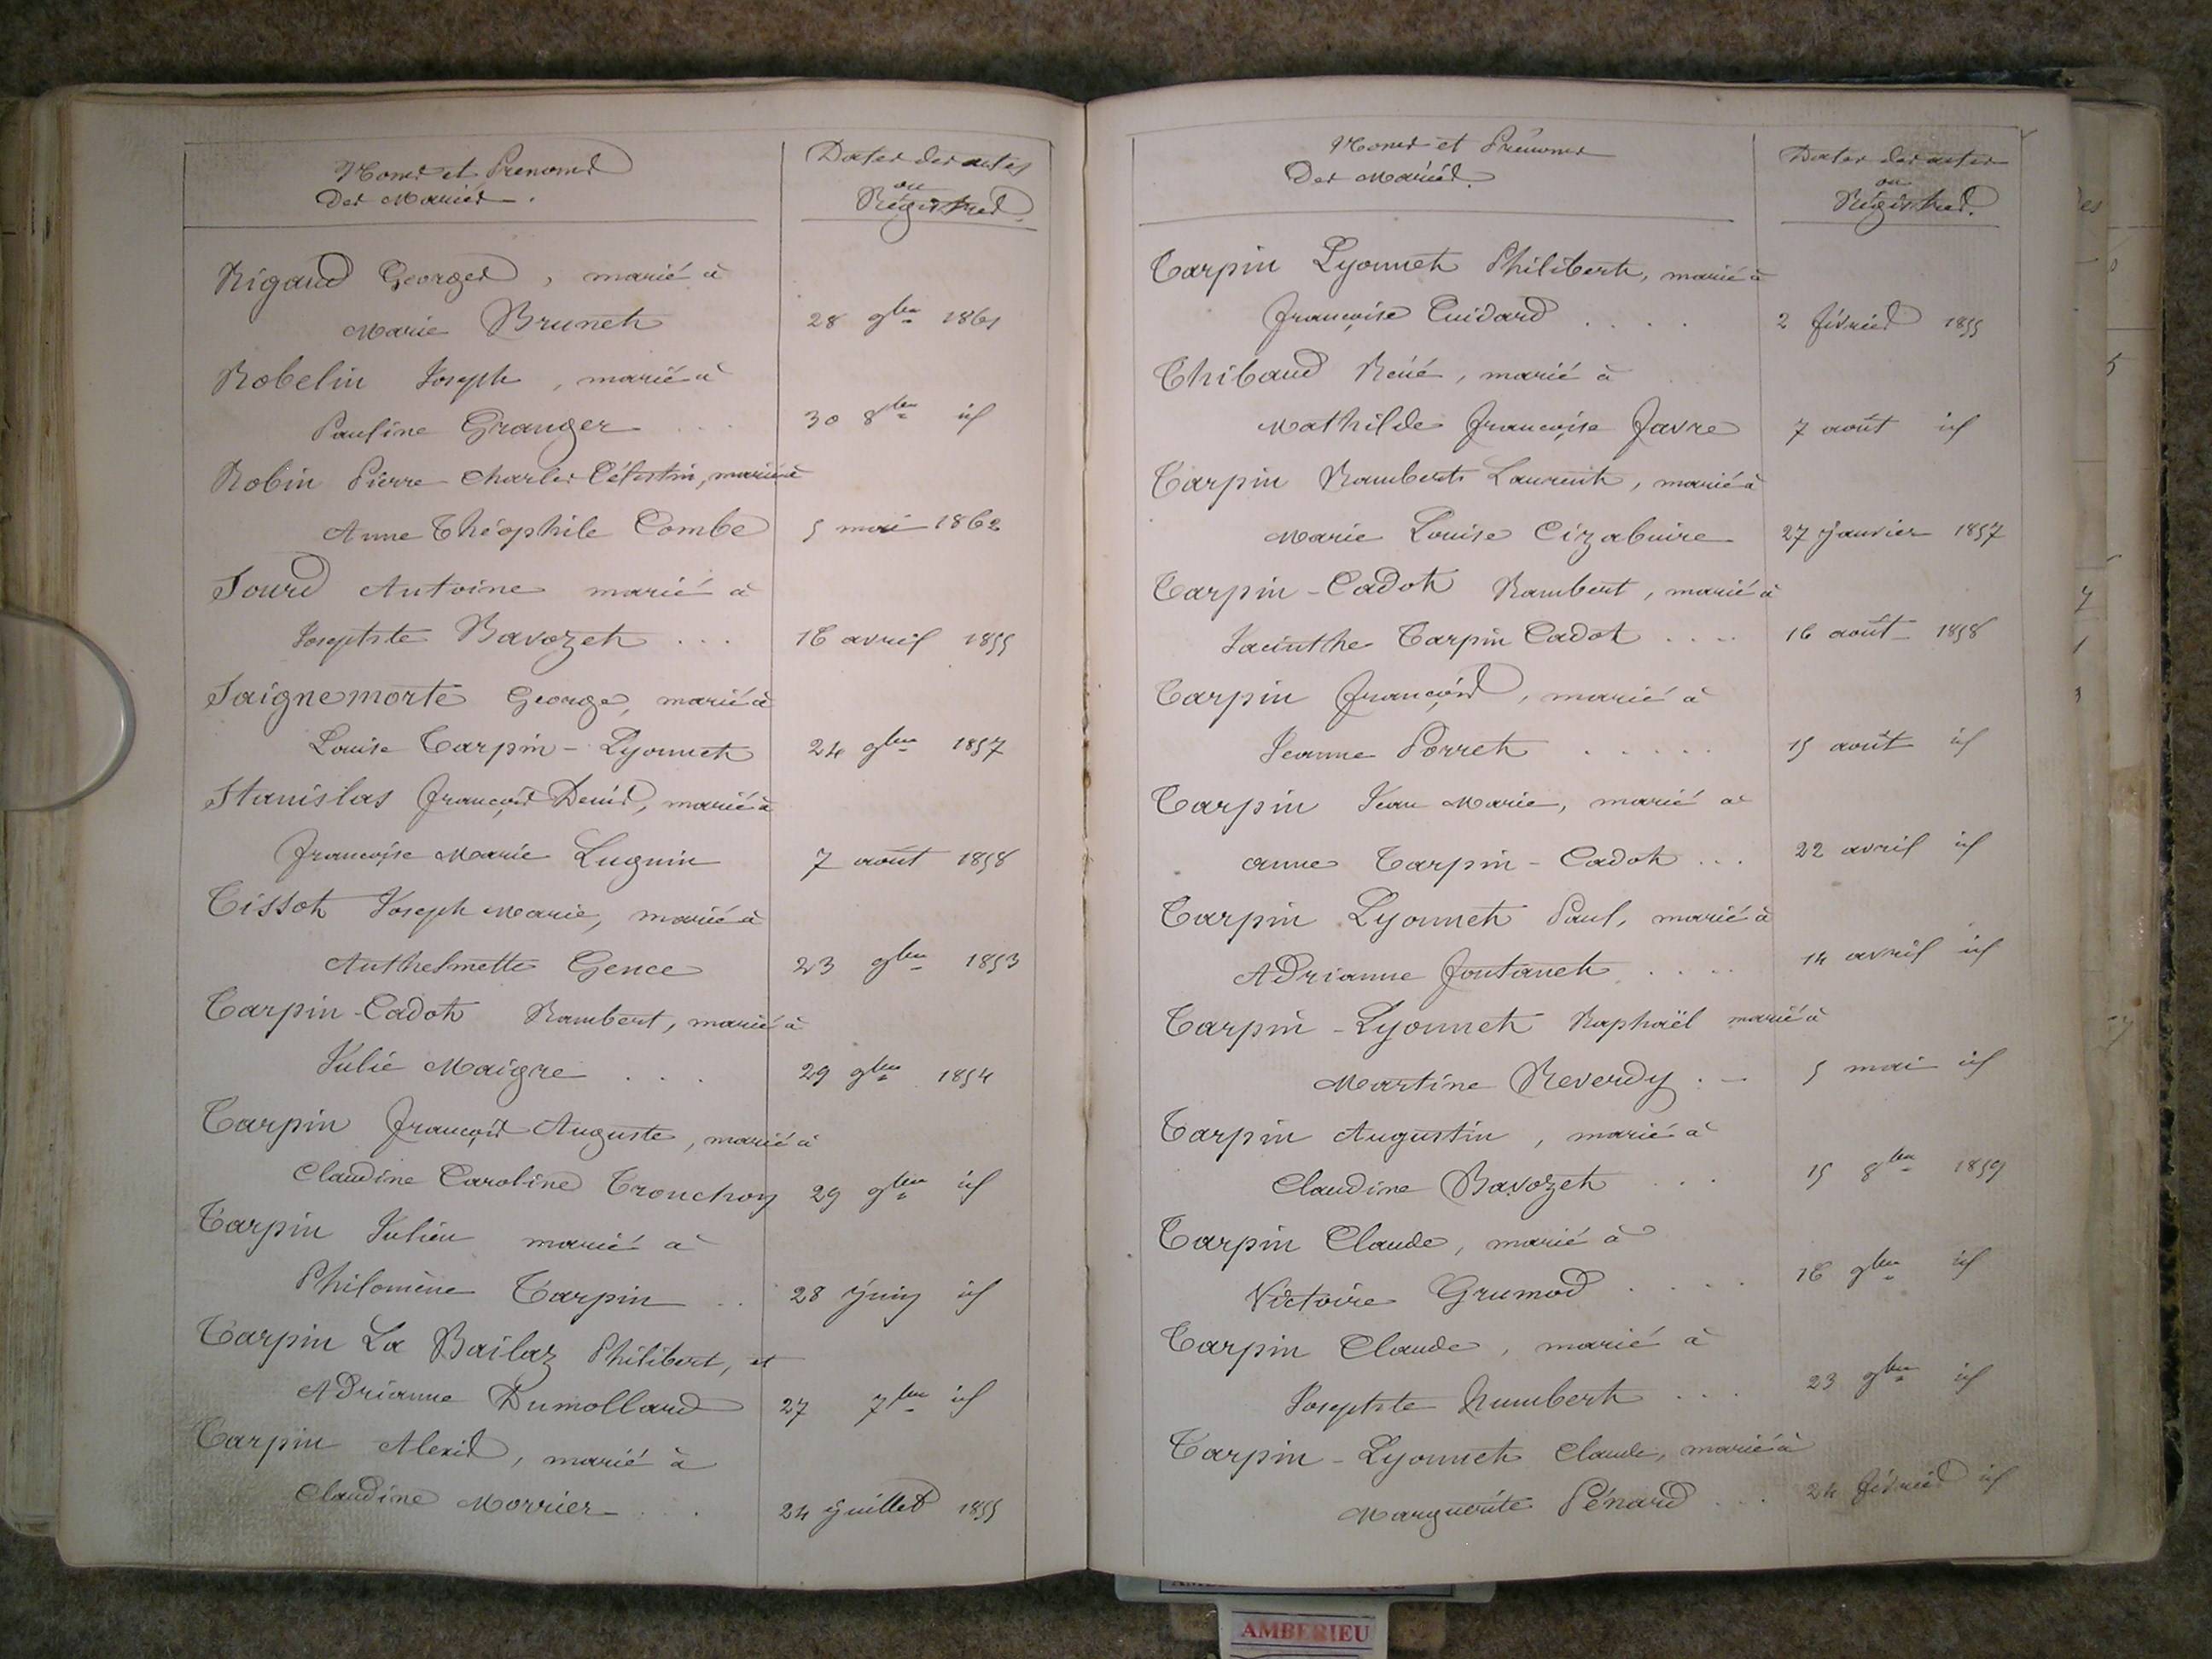 Noms et Prenoms
Des Mariés.
Dates des actes
ou
Régistres.
Rigaud Georges, marié à
Marie Brunet
28 9bre 1861
Robelin Joseph, marié à
Pauline Granger ...
30 8bre id
Robin Pierre Charles Célestin, marié à
Anne Théophile Combe
5 mai 1862
Sourd Antoine marié à
Josephte Bavozet ...
16 avril 1855
Saignemorte George, marié à
Louise Tarpin-Lyonnet
24 9bre 1857
Stanislas François Denis, marié à
Françoise Marie Lugnin
7 août 1858
Tissot Joseph Marie, marié à
Anthelmette Gence
23 9bre 1853
Tarpin-Cadot Rambert, marié à
Julie Maigre ...
29 9bre 1854
Tarpin François Auguste, marié à
Claudine Caroline Tronchon
29 9bre id
Tarpin Julien marié à
Philomène Tarpin ..
28 juin id
Tarpin La Bailaz Philibert, et
Adrianne Dumollard
27 7bre id
Tarpin Alexis, marié à
Claudine Morrier ...
24 juillet 1855
Noms et Prénoms
Des Mariés.
Dates des actes
ou
Régistres.
Tarpin Lyonnet Philibert, marié à
Françoise Cuidard ....
2 février 1855
Thibaud Réné, marié à
Mathilde Françoise Favre
7 août id
Tarpin Rambert Laurent, marié à
Marie Louise Cizabuire
27 janvier 1857
Tarpin-Cadot Rambert, marié à
Jacinthe Tarpin Cadot ....
16 août 1858
Tarpin François, marié à
Jeanne Porret .....
15 août id
Tarpin Jean Marie, marié à
anne Tarpin-Cadot ...
22 avril id
Tarpin Lyonnet Paul, marié à
Adrianne Fontanet ....
14 avril id
Tarpin-Lyonnet Raphaël marié à
Martine Reverdy . -
5 mai id
Tarpin Augustin, marié à
Claudine Bavozet ...
15 8bre 1859
Tarpin Claude, marié à
Victoire Grumod ....
16 9bre id
Tarpin Claude, marié à
Josephte humbert ...
23 9bre id
Tarpin-Lyonnet Claude, marié à
Marguerite Pénard ...
24 février id
AMBERIEU